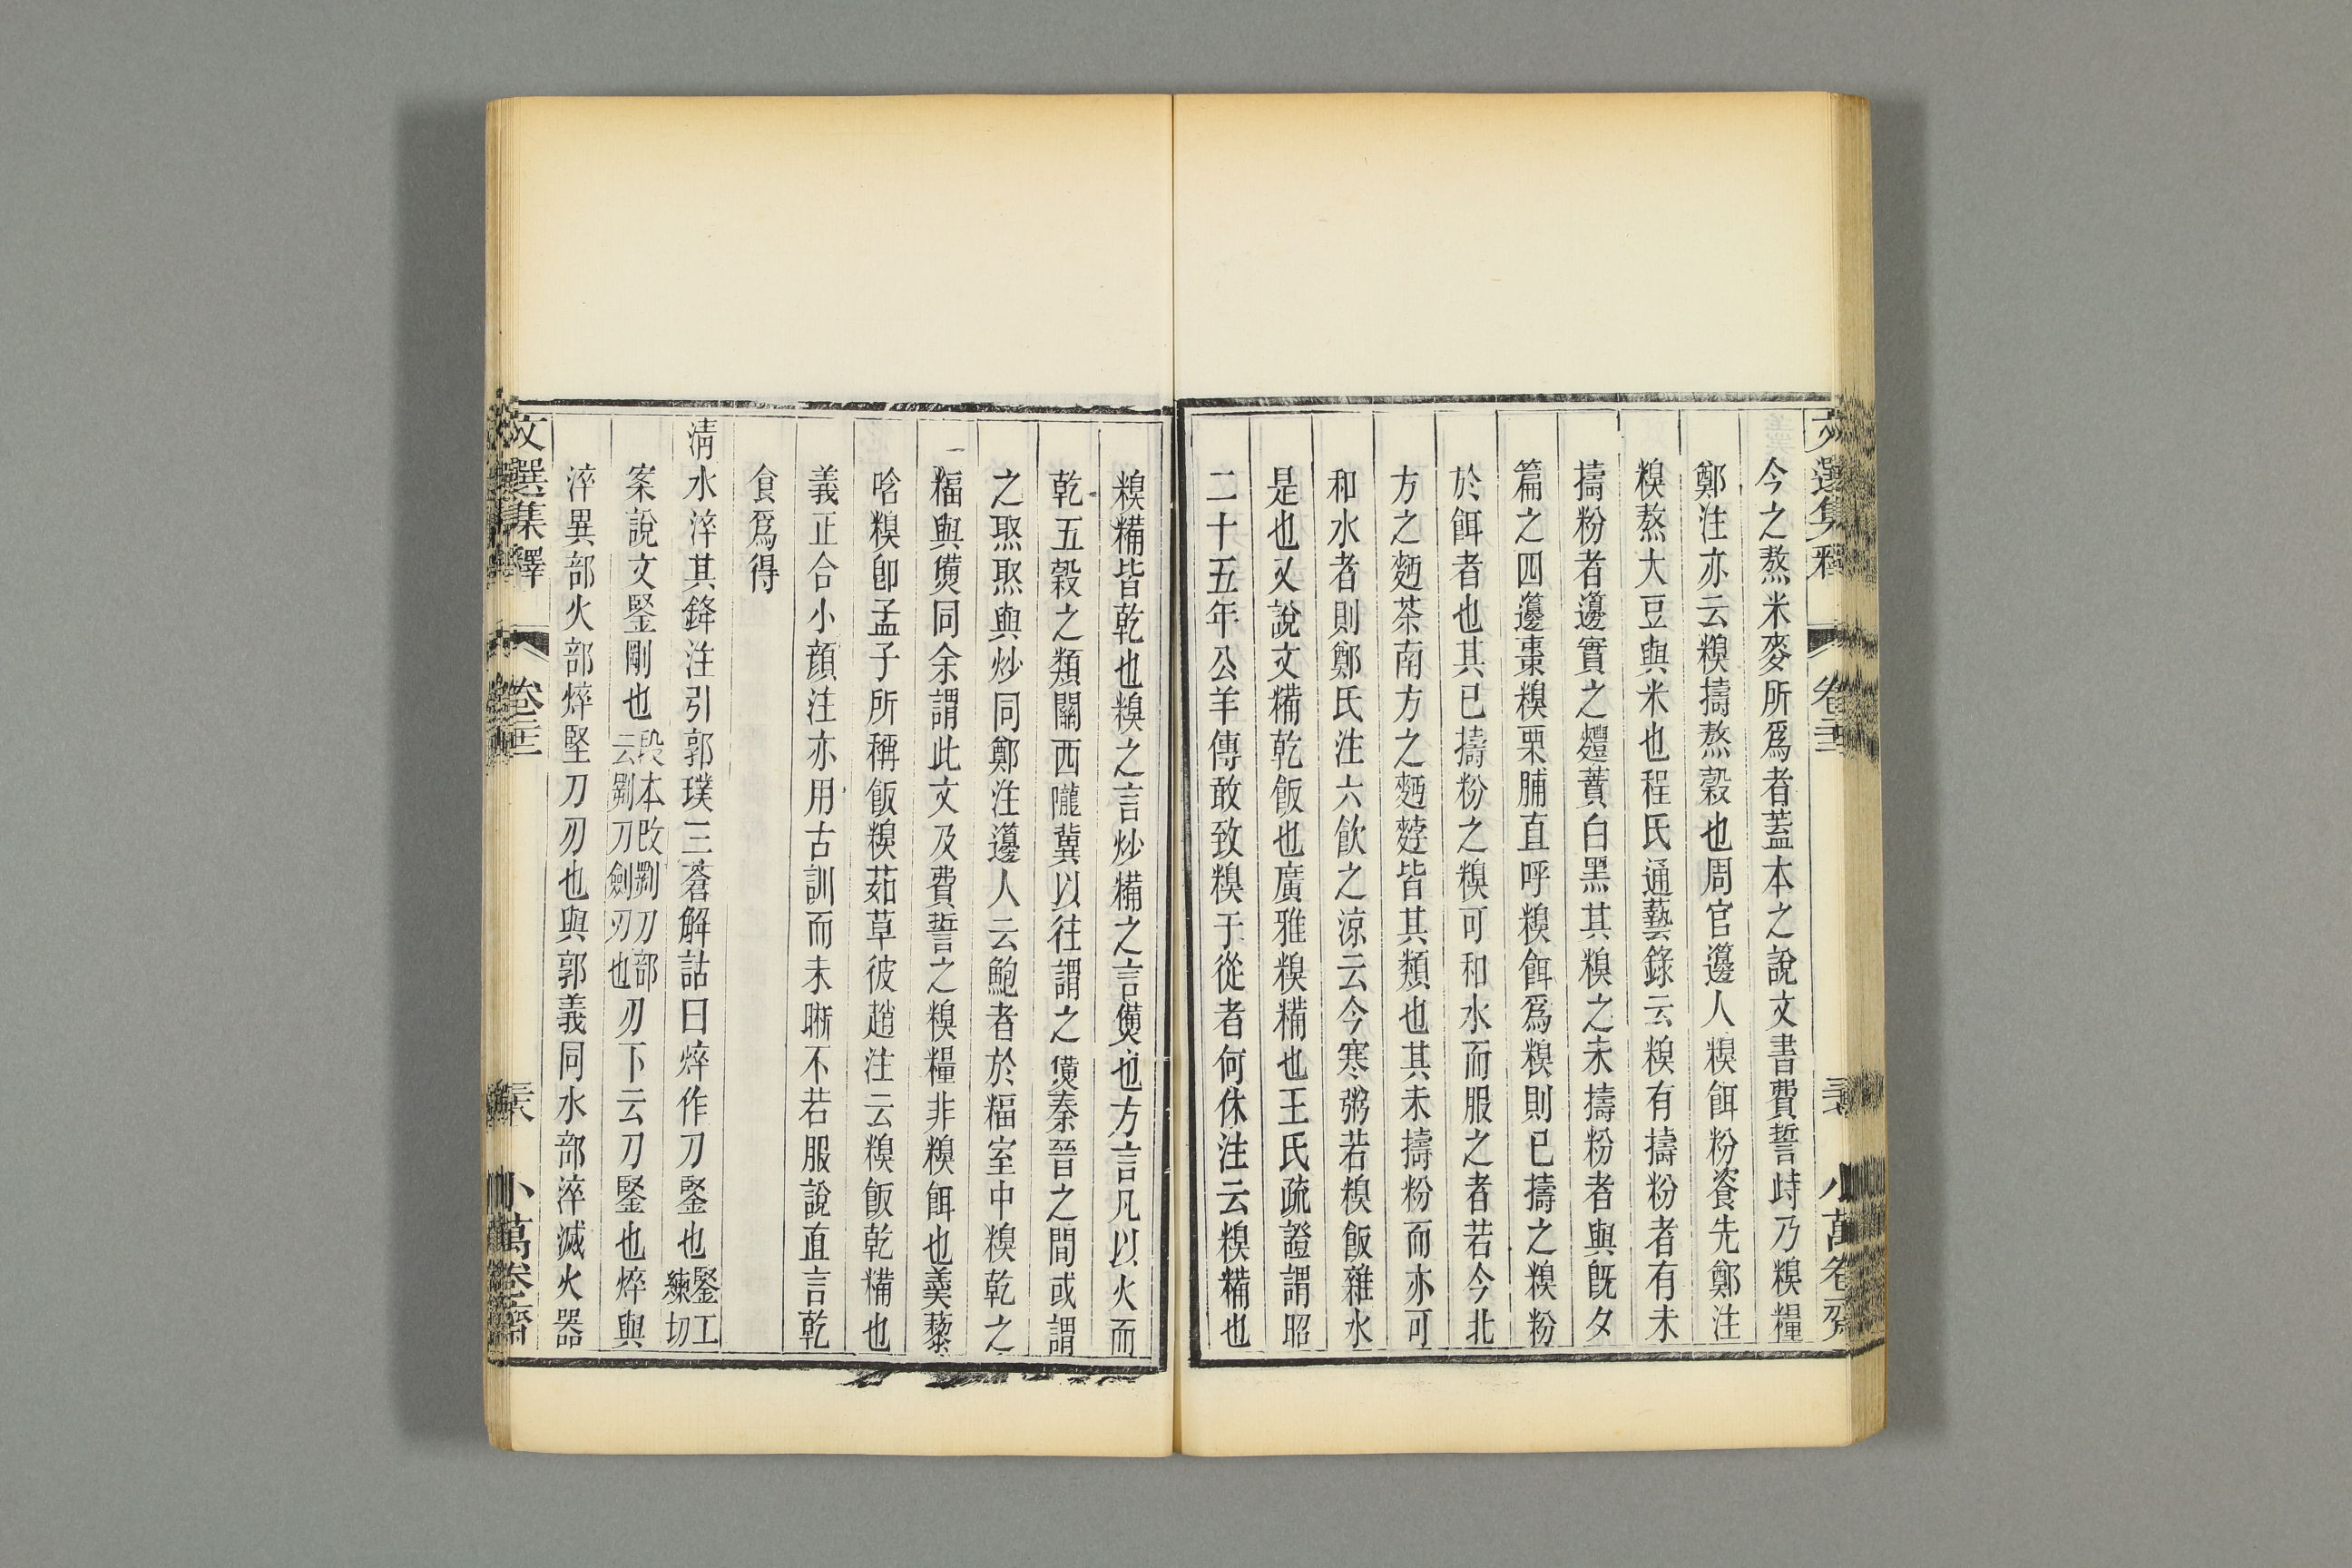 文選集釋 卷二十三 小萬卷齋
今之熬米麥所爲者蓋本之說文書費誓峙乃糗糧
鄭注亦云糗擣熬穀也周官籩人糗餌粉餈先鄭注
糗熬大豆與米也程氏通藝錄云糗有擣粉者有未
擣粉者籩實之麷蕡白黑其糗之未擣粉者與旣夕
篇之四籩棗糗栗脯直呼糗餌爲糗則已擣之糗粉
於餌者也其已擣粉之糗可和水而服之者若今北
方之麪茶南方之麪麨皆其類也其未擣粉而亦可
和水者則鄭氏注六飲之涼云今寒粥若糗飯雜水
是也又說文糒乾飯也廣雅糗糒也王氏疏證謂昭
二十五年公羊傳敢致糗于從者何休注云糗糒也
糗糒皆乾也糗之言炒糒之言㷶也方言凡以火而
乾五穀之類關西隴冀以往謂之㷶秦晉之間或謂
之聚聚與炒同鄭注籩人云鮑者於糒室中糗乾之
糒與㷶同余謂此文及費誓之糗糧非糗餌也羹藜
唅糗卽孟子所稱飯糗茹草彼趙注云糗飯乾糒也
義正合小顔注亦用古訓而未晰不若服說直言乾
食爲得
清水淬其鋒注引郭璞三蒼解詁曰焠作刀鋻也鋻工練切
案說文鋻剛也段本改劚刀部云劚刀劍刃也刃下云刀鋻也焠與
淬異部火部焠堅刀刃也與郭義同水部淬滅火器
文選集釋 卷二十三 小萬卷齋